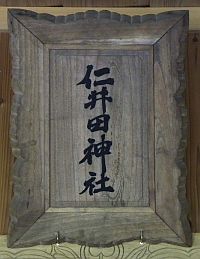 仁井田神社